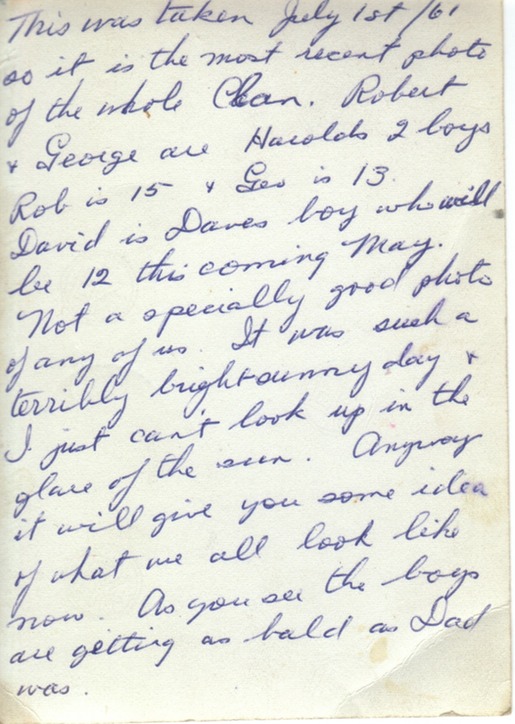 This was taken July 1st /61
so it is the most recent photo
of the whole Clan. Robert
& George are Harolds 2 boys
Rob is 15 & Geo is 13.
David is Daves boy who will
be 12 this coming May.
Not a specially good photo
of any of us. It was such a
terribly bright sunny day &
I just can't look up in the
glare of the sun. Anyway
it will give you some idea
of what we all look like
now. As you see the boys
are getting as bald as Dad
was.